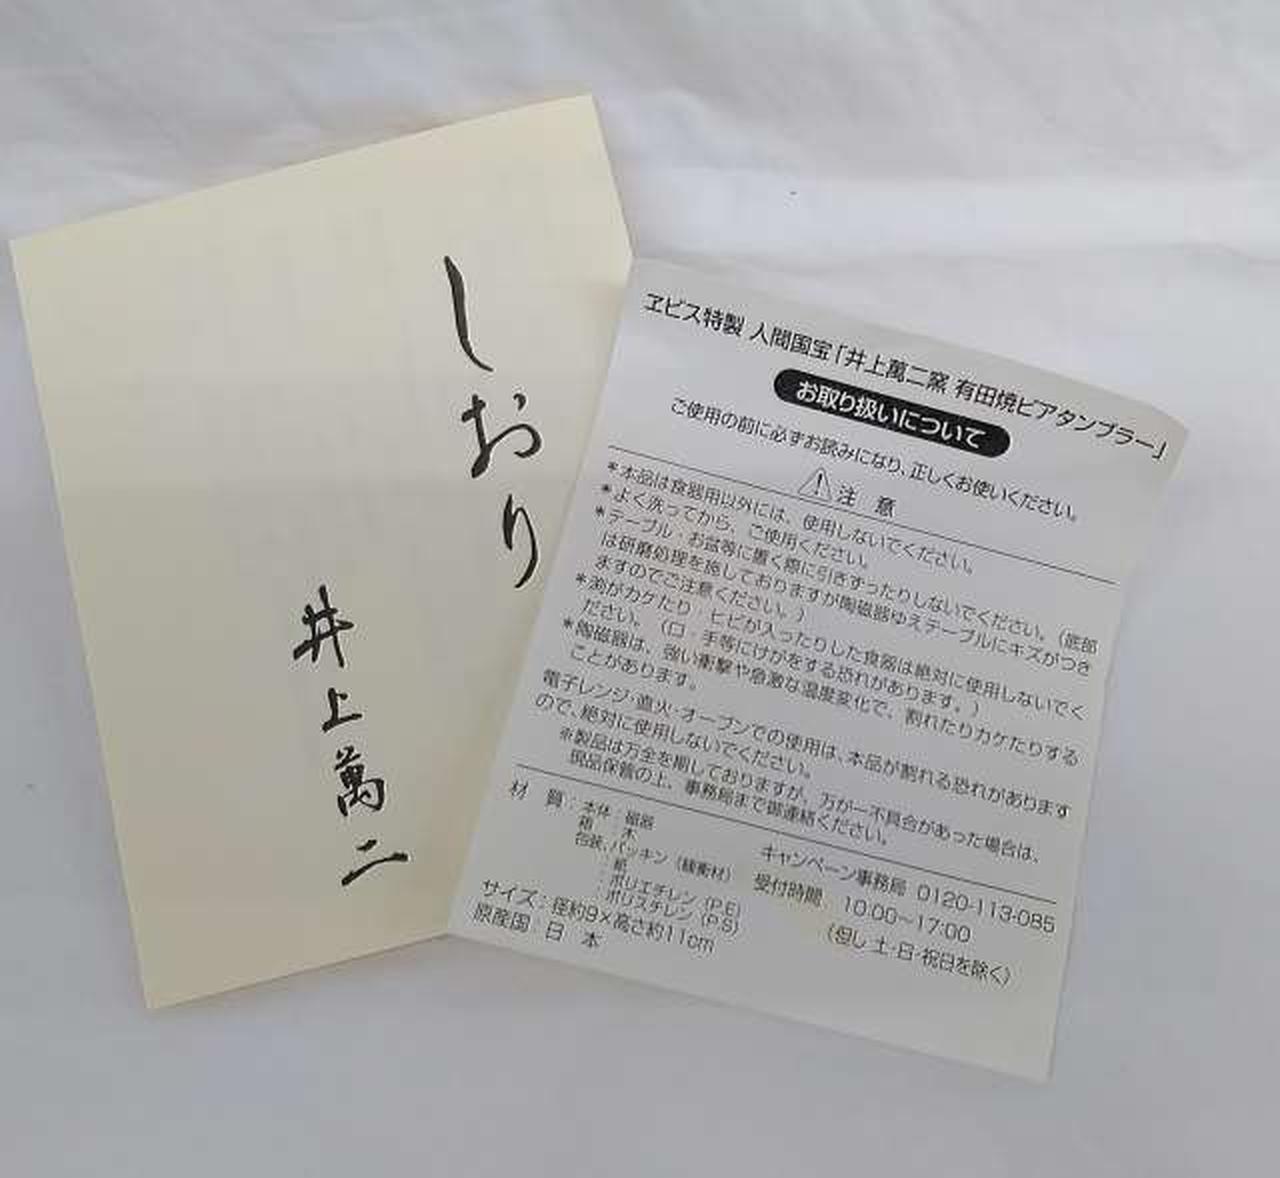 しおり
井上萬二
ヱビス特製 人間国宝「井上萬二窯 有田焼ビアタンブラー」
お取り扱いについて
ご使用の前に必ずお読みになり、正しくお使いください。
注 意
*本品は食器用以外には、使用しないでください。
*よく洗ってから、ご使用ください。
*テーブル・お盆等に置く際に引きずったりしないでください。(底部
は研磨処理を施しておりますが陶磁器ゆえテーブルにキズがつき
ますのでご注意ください。)
*淵がカケたり・ヒビが入ったりした食器は絶対に使用しないでく
ださい。(口・手等にけがをする恐れがあります。)
*陶磁器は、強い衝撃や急激な温度変化で、割れたりカケたりする
ことがあります。
電子レンジ・直火・オーブンでの使用は、本品が割れる恐れがあります
ので、絶対に使用しないでください。
※製品は万全を期しておりますが、万が一不具合があった場合は、
現品保管の上、事務局まで御連絡ください。
材 質:本体:磁器
箱:木
包装,パッキン(緩衝材)
:紙
:ポリエチレン(P.E)
:ポリスチレン(P.S)
サイズ:径約9×高さ約11cm
原産国:日 本
キャンペーン事務局 0120-113-085
受付時間 10:00~17:00
(但し 土・日・祝日を除く)